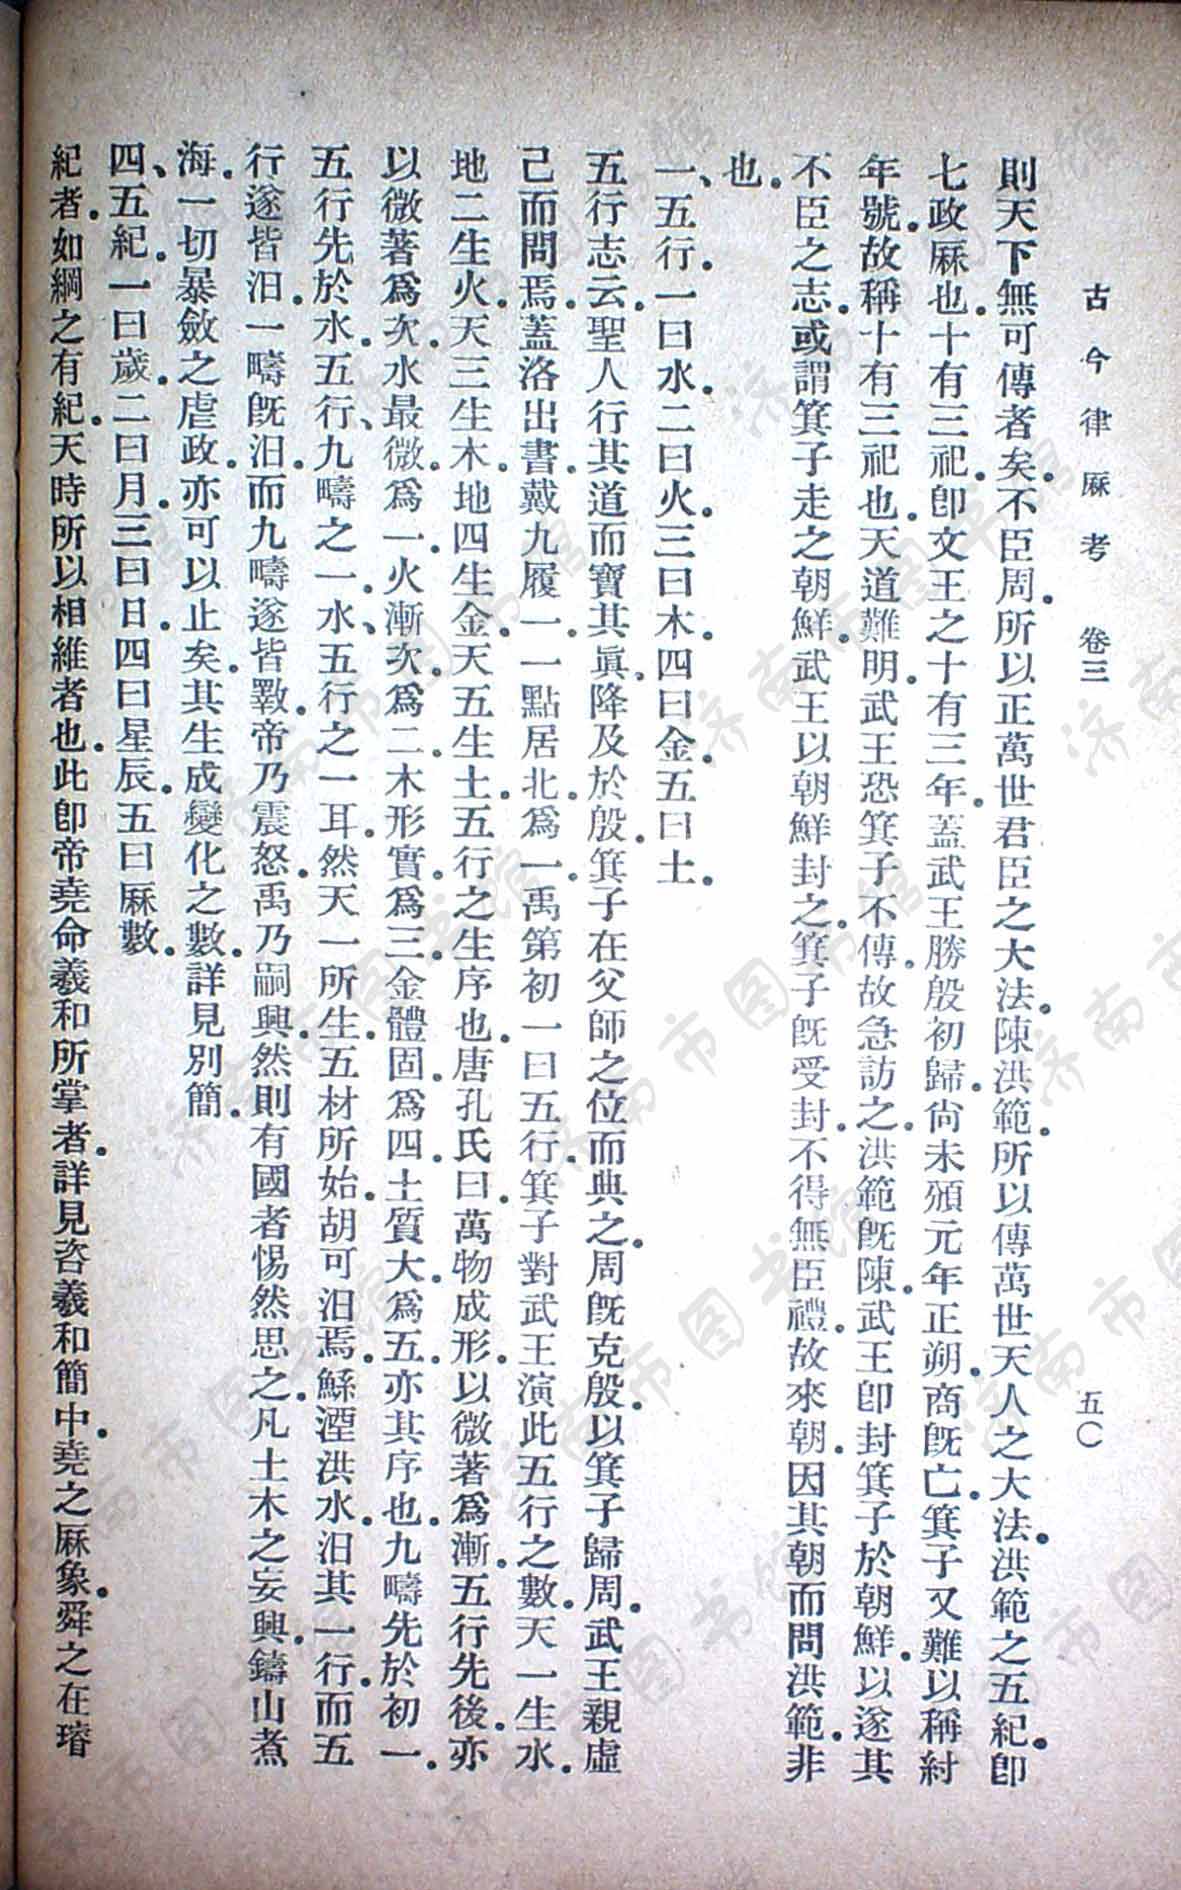 古今律厤考　卷三　五〇
則天下無可傳者矣。不臣周。所以正萬世君臣之大法。陳洪範。所以傳萬世天人之大法。洪範之五紀。卽
七政厤也。十有三祀。卽文王之十有三年。蓋武王勝殷初歸。尙未頒元年正朔。商旣亡。箕子又難以稱紂
年號。故稱十有三祀也。天道難明。武王恐箕子不傳。故急訪之。洪範旣陳。武王卽封箕子於朝鮮。以遂其
不臣之志。或謂箕子走之朝鮮。武王以朝鮮封之。箕子旣受封。不得無臣禮。故來朝。因其朝而問洪範。非
也。
一、五行。一曰水。二曰火。三曰木。四曰金。五曰土。
五行志云。聖人行其道而寶其眞。降及於殷。箕子在父師之位而典之。周旣克殷。以箕子歸周。武王親虛
己而問焉。蓋洛出書。戴九履一。一點居北。爲一。禹第初一曰五行。箕子對武王演此五行之數。天一生水。
地二生火。天三生木。地四生金。天五生土。五行之生序也。唐孔氏曰。萬物成形。以微著爲漸。五行先後。亦
以微著爲次。水最微。爲一。火漸次。爲二。木形實。爲三。金體固。爲四。土質大。爲五。亦其序也。九疇先於初一。
五行先於水。五行、九疇之一。水、五行之一耳。然天一所生。五材所始。胡可汨焉。鯀湮洪水。汨其一行。而五
行遂皆汨。一疇旣汨。而九疇遂皆斁。帝乃震怒。禹乃嗣興。然則有國者惕然思之。凡土木之妄興。鑄山煮
海。一切暴斂之虐政。亦可以止矣。其生成變化之數。詳見別簡。
四、五紀。一曰歲。二曰月。三曰日。四曰星辰。五曰厤數。
紀者。如綱之有紀。天時所以相維者也。此卽帝堯命羲和所掌者。詳見咨羲和簡中。堯之厤象。舜之在璿